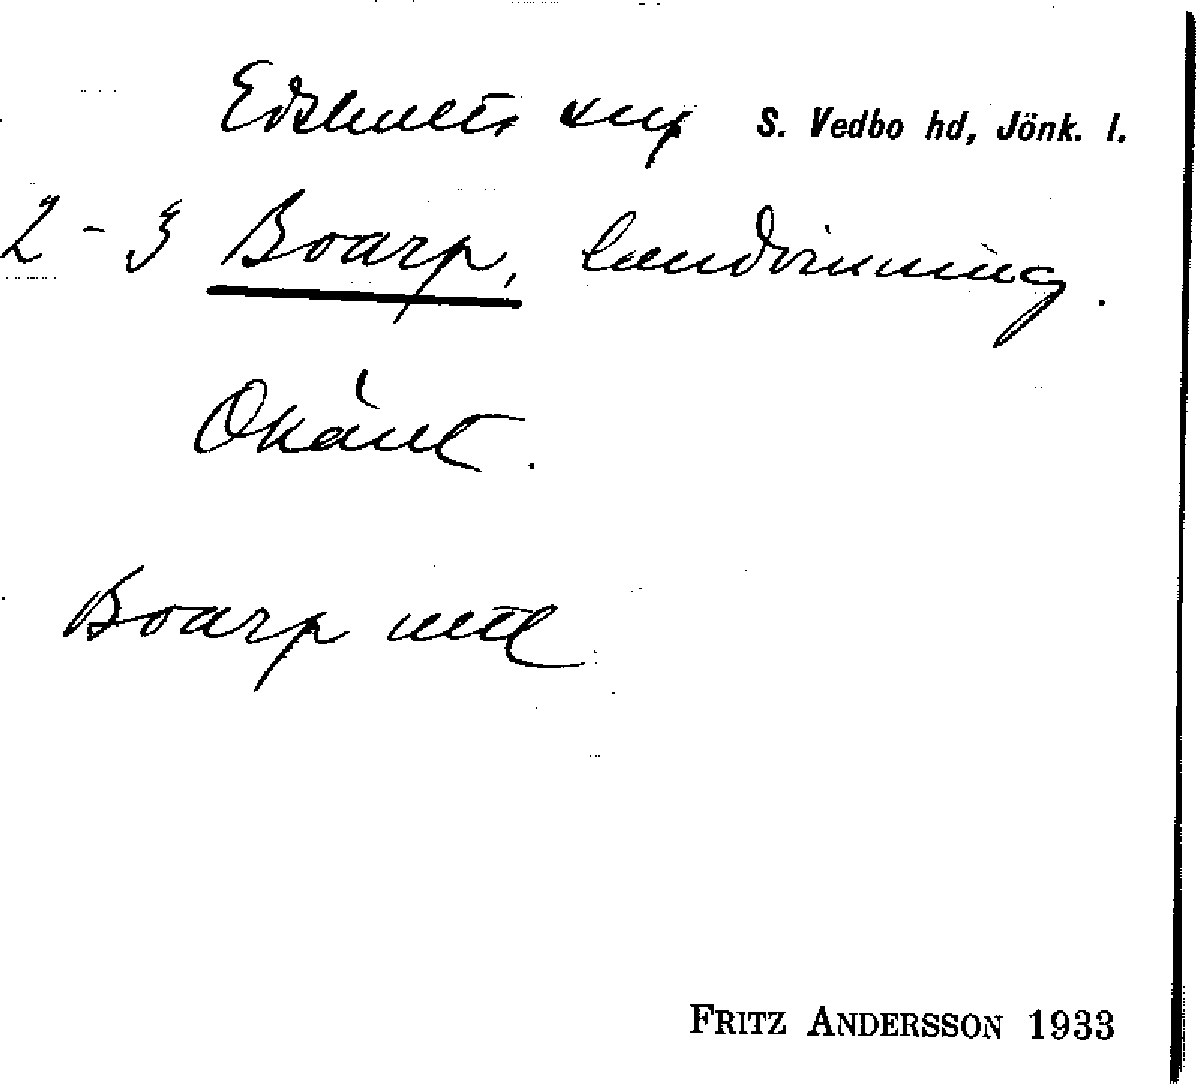 Edshults skn S. Vedbo hd, Jönk. l.
2-3 Boarp, landvinning.
Okänt.
Boarp
FRITZ ANDERSSON 1933